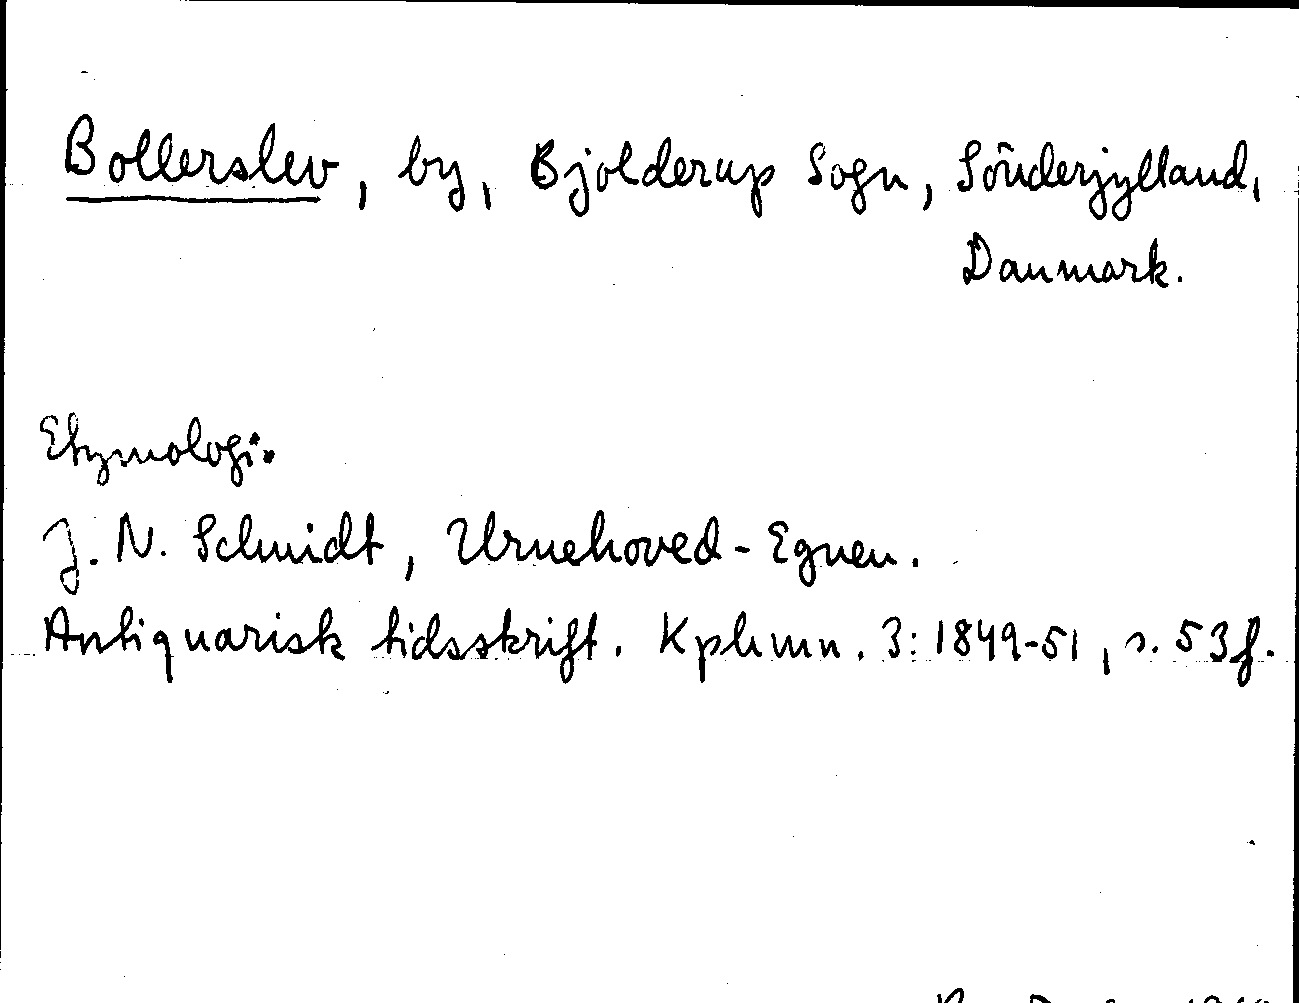 Bollerslev, by, Bjolderup Sogn, Sönderjylland,
Danmark.
Etymologi.
J. N. Schmidt, Urnehoved-Egnen.
Antiquarisk tidsskrift. Kphmn. 3: 1849-51, s. 53 f.